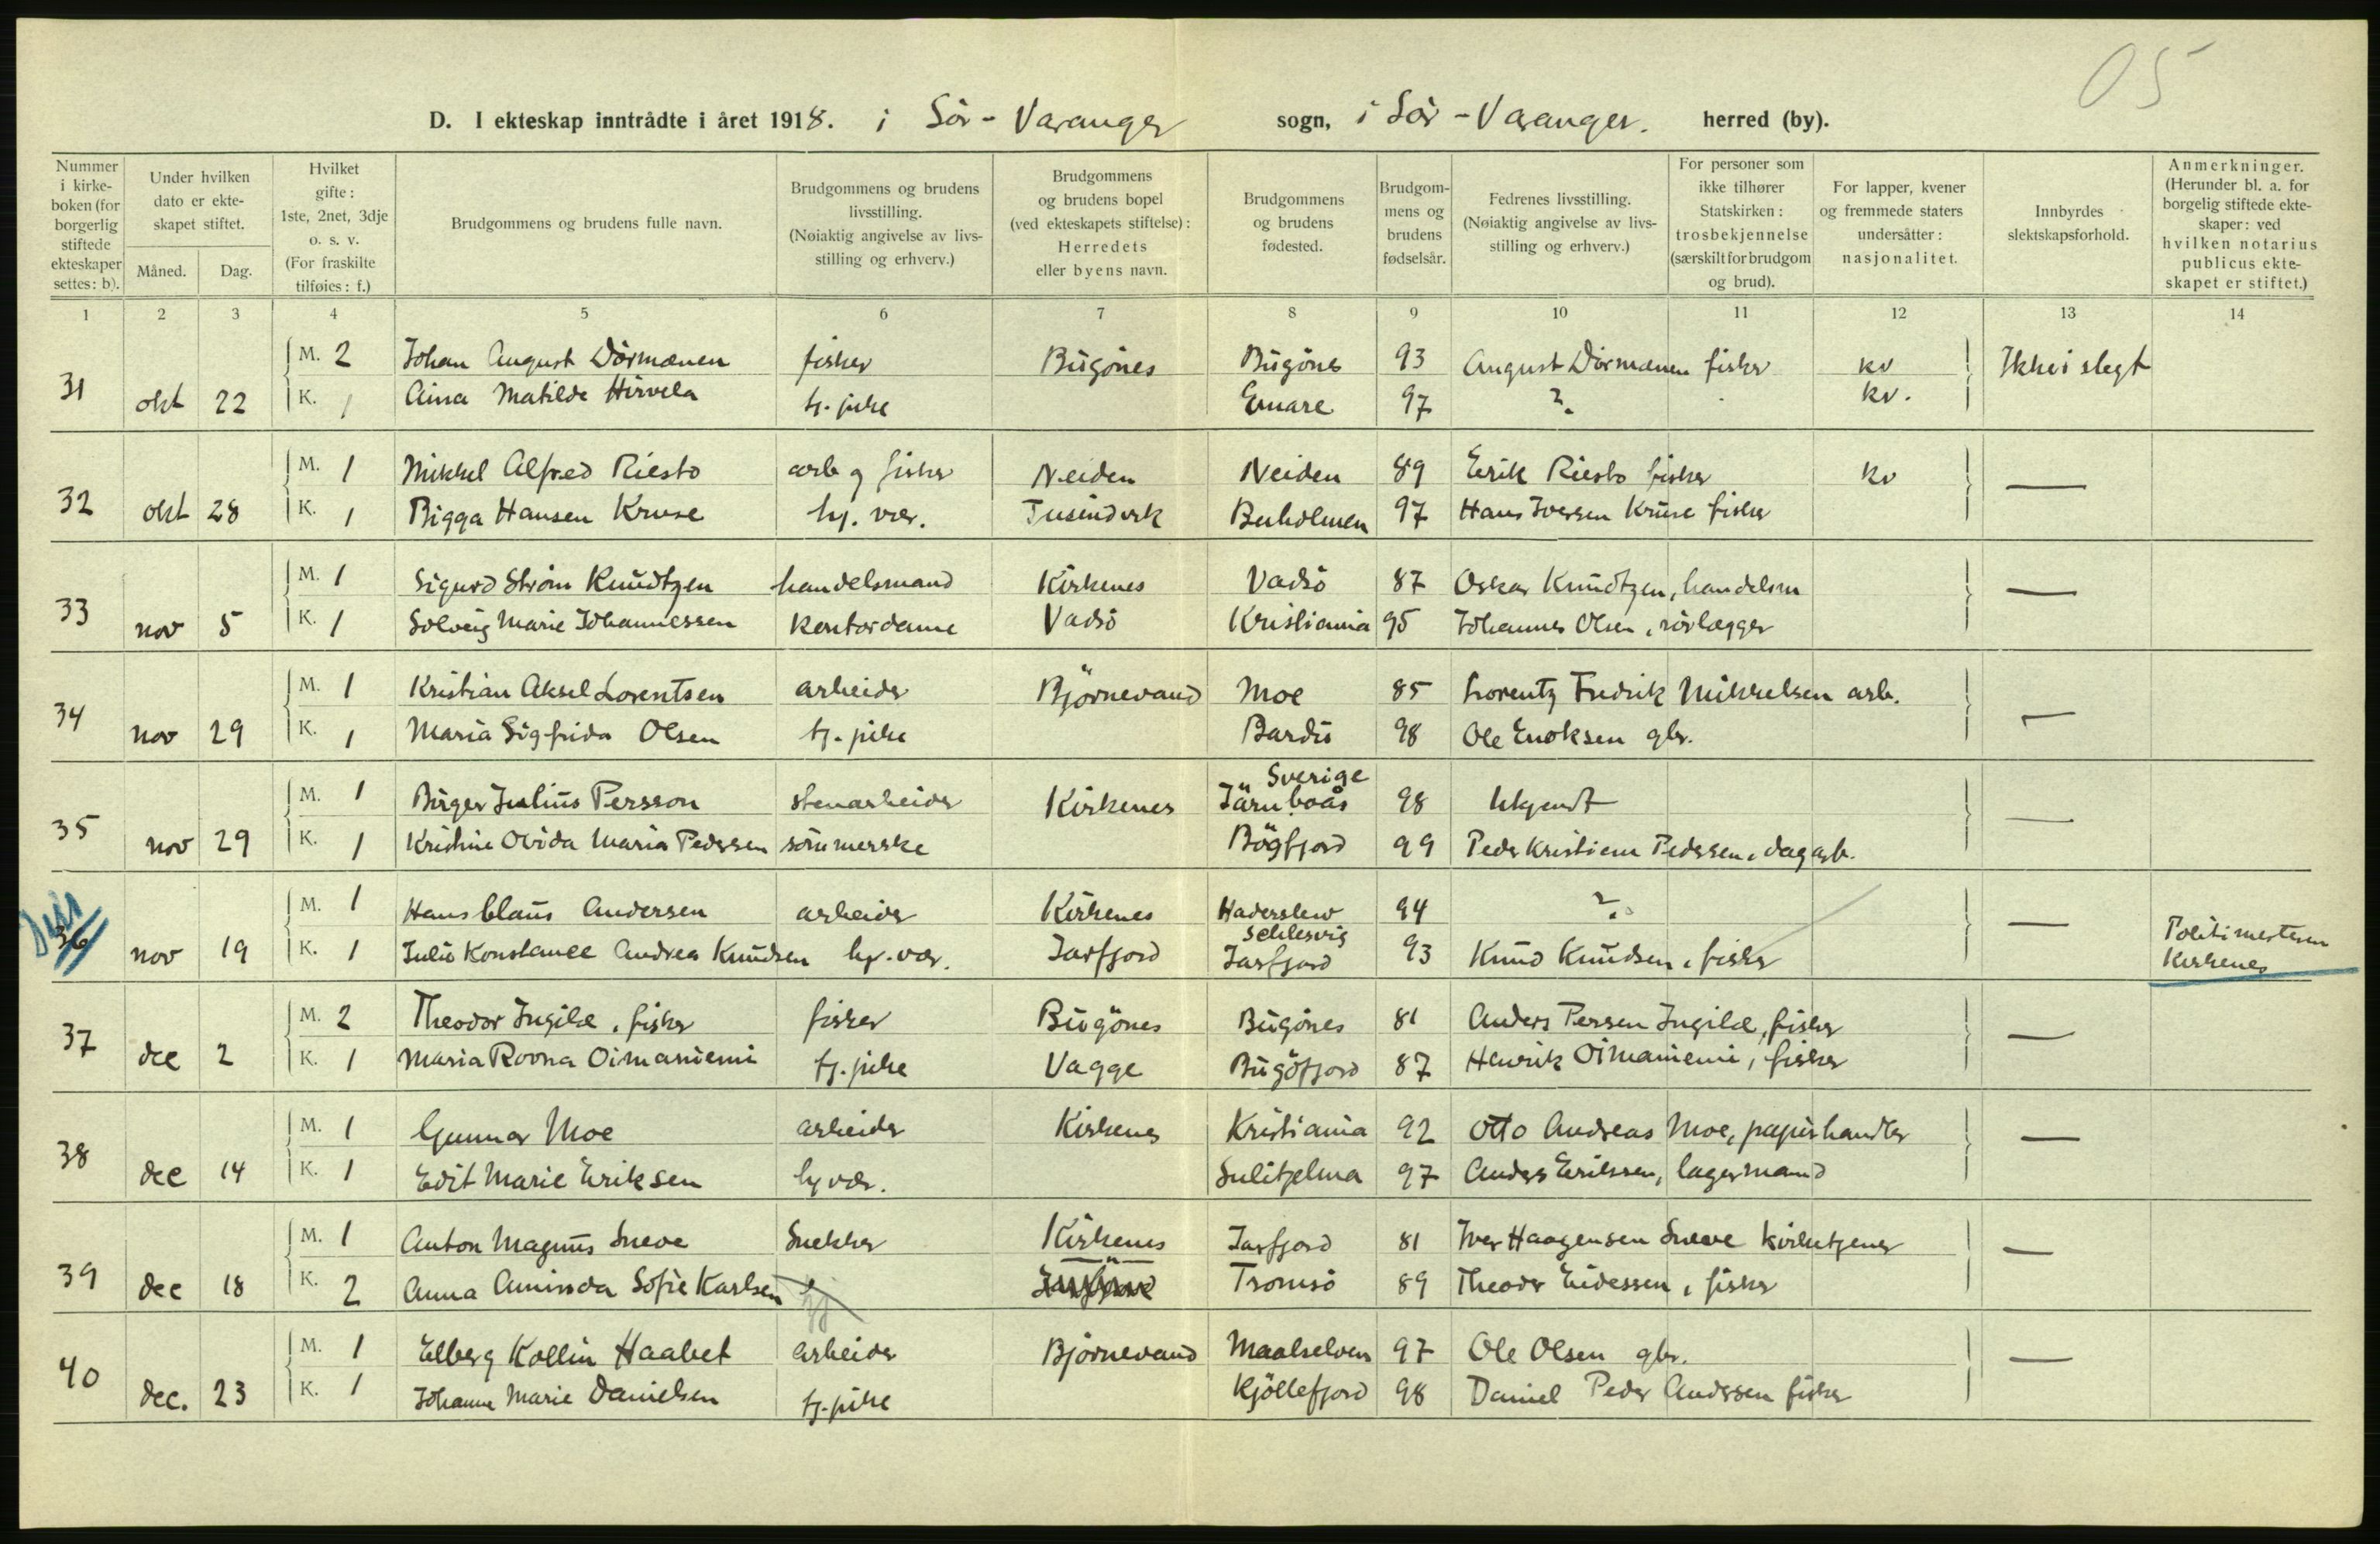 05
D. I ekteskap inntrådte i året 1918. i Sör-Varanger sogn, i Sör-Varanger. herred (by).
Nummer i kirkeboken (for borgerlig stiftede ekteskaper settes: b).
Under hvilken dato er ekteskapet stiftet.
Måned. Dag.
Hvilket gifte: 1ste, 2net, 3dje o. s. v. (For fraskilte tilføies: f.)
Brudgommens og brudens fulle navn.
Brudgommens og brudens livsstilling. (Nøiaktig angivelse av livsstilling og erhverv.)
Brudgommens og brudens bopel (ved ekteskapets stiftelse): Herredets eller byens navn.
Brudgommens og brudens fødested.
Brudgommens og brudens fødselsår.
Fedrenes livsstilling. (Nøiaktig angivelse av livsstilling og erhverv.)
For personer som ikke tilhører Statskirken: trosbekjennelse (særskilt for brudgom og brud).
For lapper, kvener og fremmede staters undersåtter: nasjonalitet.
Innbyrdes slektskapsforhold.
Anmerkninger. (Herunder bl. a. for borgelig stiftede ekteskaper: ved hvilken notarius publicus ekteskapet er stiftet.)
1 2 3 4 5 6 7 8 9 10 11 12 13 14
M. 2 Johan August Dörmænen fisker Bugönes Bugönes 93 August Dörmænen fisker kv Ikke i slegt
31 okt 22 K. 1 Aina Matilde Hirvela tj. pike Enare 97 ? kv.
M. 1 Mikkel Alfred Riesto arb og fisker Neiden Neiden 89 Erik Riesto fisker kv —
32 okt 28 K. 1 Bigga Hansen Kruse hj. vær. Buholmen 97 Hans Iversen Kruse fisker
M. 1 Sigurd Ström Knudtzen handelsmand Kirkenes Vadsö 87 Oskar Knudtzen, handelsm —
33 nov 5 K. 1 Solveig Marie Johannessen kontordame Vadsö Kristiania 95 Johannes Olsen, rörlægger
M. 1 Kristian Aksel Lorentsen arbeider Björnevand Moe 85 Lorentz Fredrik Mikkelsen arb. —
34 nov 29 K. 1 Maria Sigfrida Olsen tj. pike Bardu 98 Ole Enoksen gbr.
Sverige
M. 1 Birger Julius Persson stenarbeider Kirkenes Järnboås 98 Ukjendt —
35 nov 29 K. 1 Kristine Ovida Maria Pedersen sömmerske Bögfjord 99 Peder Kristian Pedersen, dagarb.
M. 1 Hans Claus Andersen arbeider Kirkenes Haderslew Schlesvig 94 ? —
36 nov 19 K. 1 Julie Konstance Andrea Knudsen hj. vær. Jarfjord Jarfjord 93 Knud Knudsen, fisker Politimesteren Kirkenes
M. 2 Theodor Ingilæ, fisker fisker Bugönes Bugönes 81 Anders Persen Ingilæ, fisker —
37 dec 2 K. 1 Maria Rovna Oimaniemi tj. pike Vagge Bugöfjord 87 Henrik Oimaniemi, fisker
M. 1 Gunnar Moe arbeider Kirkenes Kristiania 92 Otto Andreas Moe, papirhandler —
38 dec 14 K. 1 Edit Marie Eriksen hj vær. Sulitjelma 97 Anders Eriksen, lagermand
M. 1 Anton Magnus Sneve Snekker Kirkenes Jarfjord 81 Iver Haagensen Sneve kirketjener —
39 dec 18 K. 2 Anna Aminda Sofie Karlsen Tromsö 89 Theodor Eidessen, fisker
M. 1 Elberg Kollin Haabet arbeider Björnevand Maalselven 97 Ole Olsen gbr. —
40 dec. 23 K. 1 Johanne Marie Danielsen tj. pike Kjöllefjord 98 Daniel Peder Andersen fisker